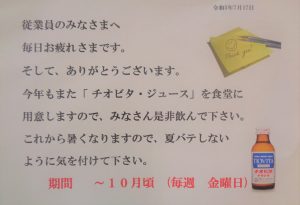 令和3年7月17日
従業員のみなさまへ
毎日お疲れさまです。
そして、ありがとうございます。
今年もまた「 チオビタ・ジュース」を食堂に
用意しますので、みなさん是非飲んで下さい。
これから暑くなりますので、夏バテしない
ように気を付けて下さい。
期間　～１０月頃　（毎週　金曜日）
Thank you!
TIOVITA
チオビタ